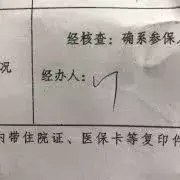 经核查：确系参保人
况
经办人：
内带住院证、医保卡等复印件